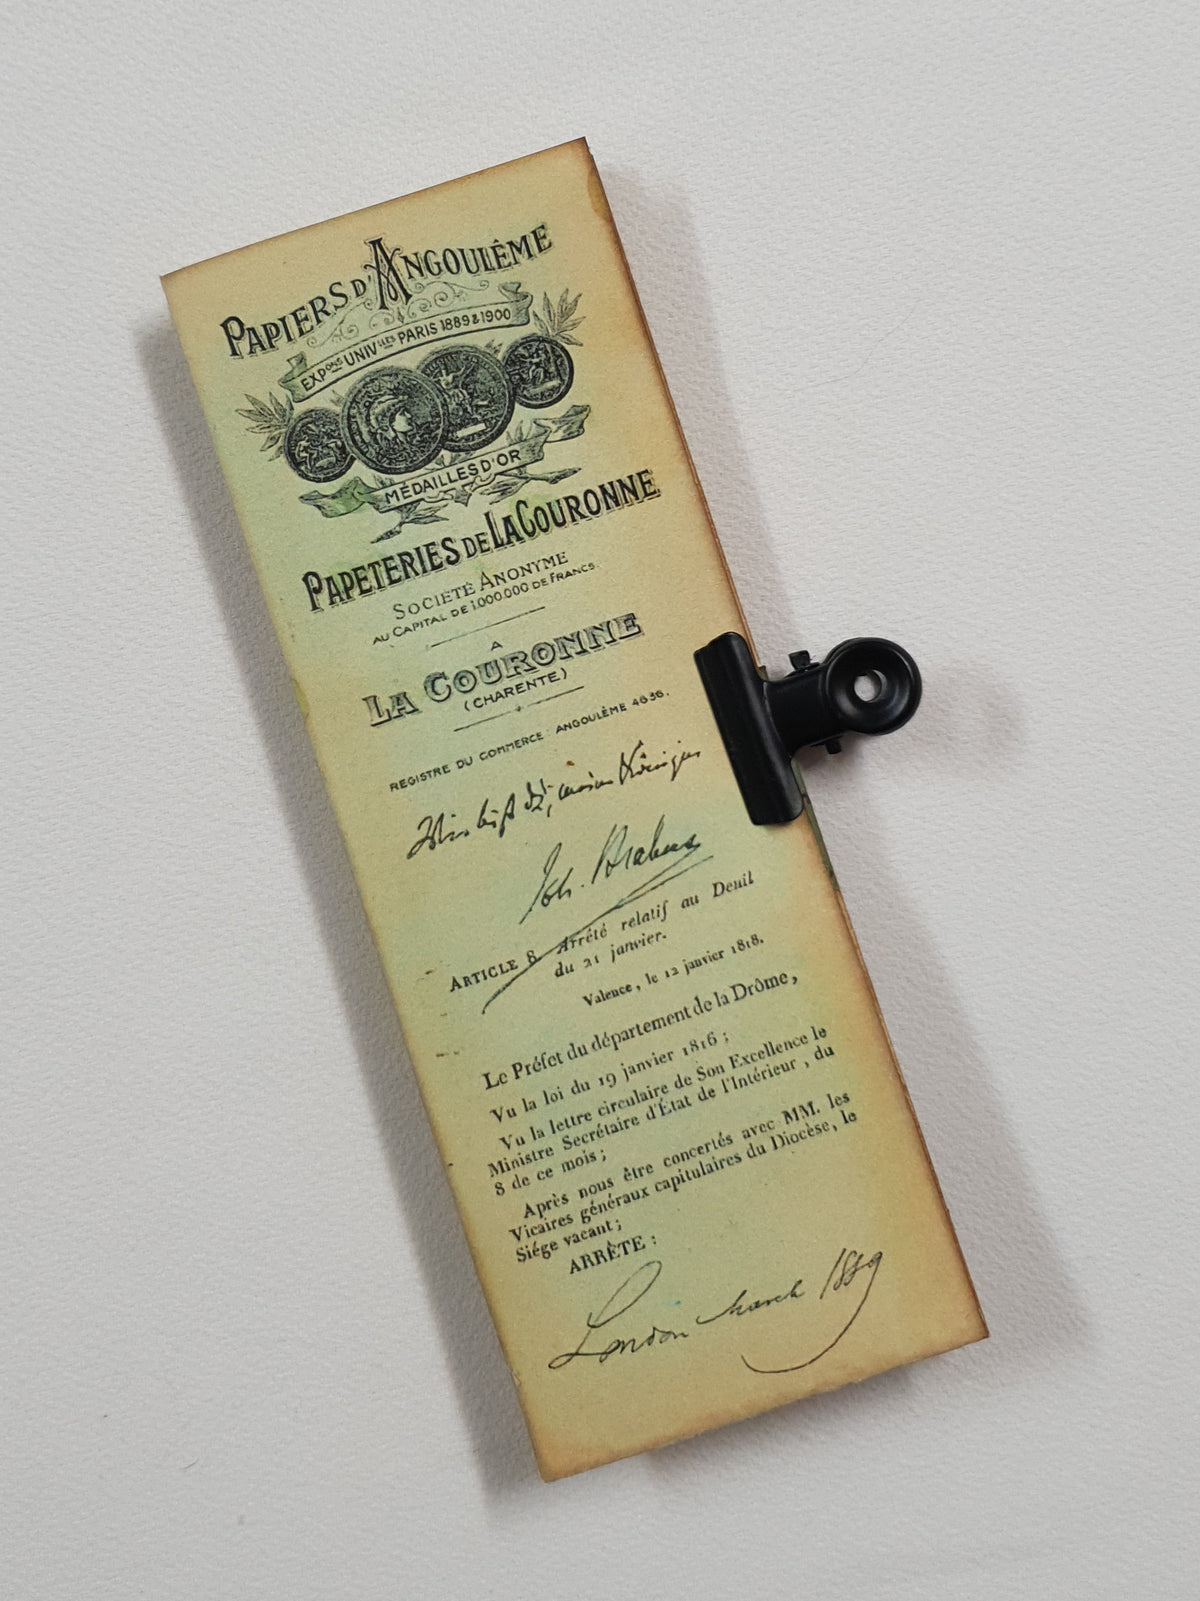 PAPIERS D'ANGOULÊME
EXPONS UNIVLLES PARIS 1889 & 1900
MÉDAILLES D'OR
PAPETERIES DE LA COURONNE
SOCIÉTÉ ANONYME
AU CAPITAL DE 1.000.000 DE FRANCS.
A
LA COURONNE
(CHARENTE)
REGISTRE DU COMMERCE ANGOULÊME 4636.
Joh. Brahms
ARTICLE 8. Arrêté relatif au Deuil
du 21 janvier.
Valence, le 12 janvier 1818.
Le Préfet du département de la Drôme,
Vu la loi du 19 janvier 1816;
Vu la lettre circulaire de Son Excellence le
Ministre Secrétaire d'État de l'Intérieur, du
8 de ce mois;
Après nous être concertés avec MM. les
Vicaires généraux capitulaires du Diocèse, le
Siége vacant;
ARRÊTE:
London March 1889